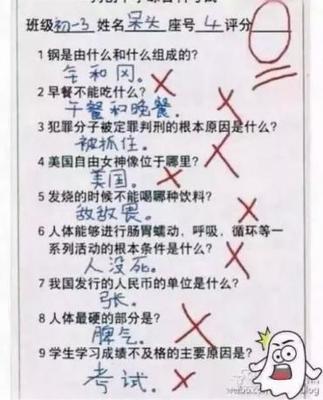 班级初一3 姓名呆头 座号4 评分0
1 钢是由什么和什么组成的?
钅和冈。
2 早餐不能吃什么?
午餐和晚餐。
3 犯罪分子被定罪判刑的根本原因是什么?
被抓住。
4 美国自由女神像位于哪里?
美国。
5 发烧的时候不能喝哪种饮料?
敌敌畏。
6 人体能够进行肠胃蠕动，呼吸，循环等一
系列活动的根本条件是什么?
人没死。
7 我国发行的人民币的单位是什么?
张。
8 人体最硬的部分是?
脾气。
9 学生学习成绩不及格的主要原因是?
考试。